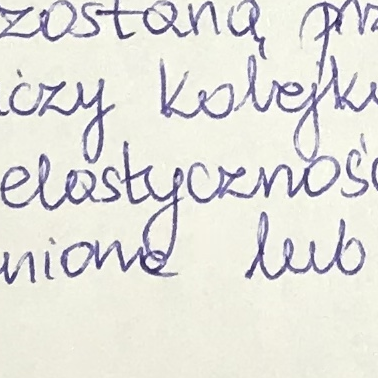 zostaną prz
iczy kolejk
elastycznoś
nione lub